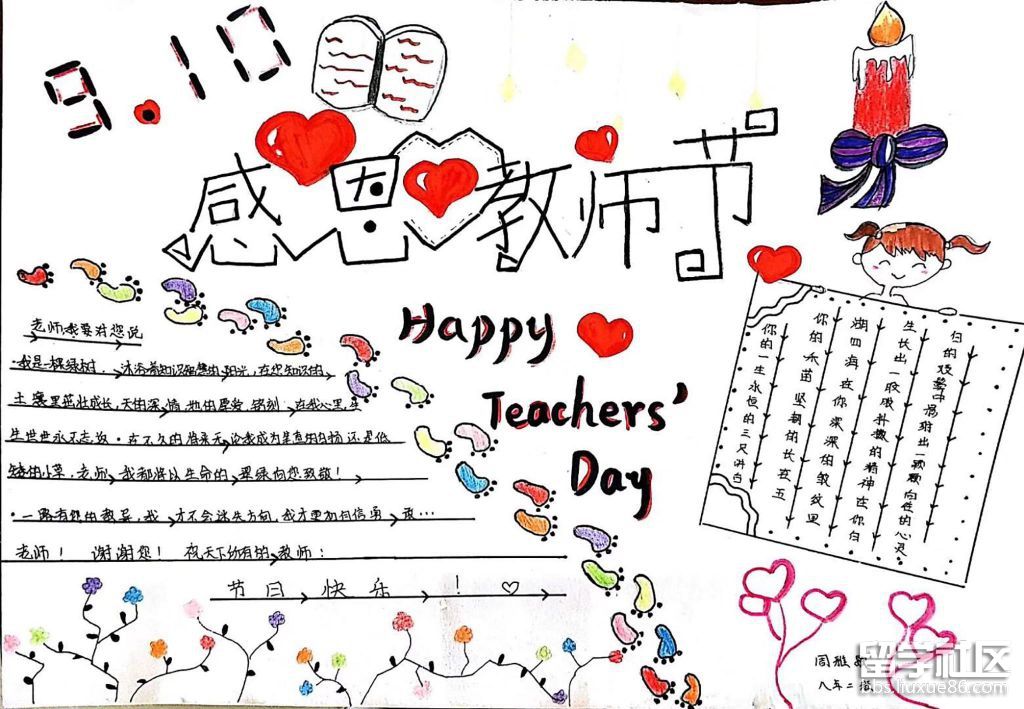 9.10
感恩教师节
Happy
Teachers'
Day
老师,我要对您说
·我是一棵绿树.沐浴着知识智慧的阳光,在您知识的
土壤里茁壮成长,天的深情地的厚爱 铭刻 在我心里,生
生世世永不忘, 在不久的将来无论我成为 还是低
矮的小草,老师,我都将以生命的 翠绿向您致敬!
·一路有您的教导,我 才不会迷失方向,我才更加有信勇 敢…
老师! 谢谢您! 祝天下所有的教师:
节日快乐!
归的枝梦中 出一颗颗向往的心灵
生长出一收收 的精神在你白
湖四海 在你深深的皱纹里
你的禾苗 坚韧的长在五
你的一生永恒的三尺讲台
周雅
八年二
留学社区
bs.liuxue86.com